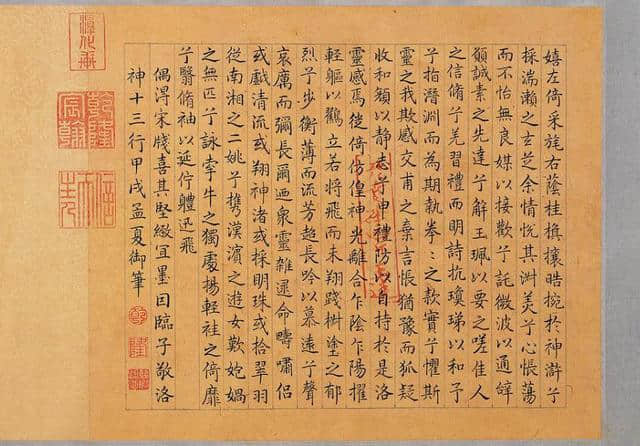 嬉左倚采旄右蔭桂旗攘皓捥於神滸兮
採湍瀨之玄芝余情悅其淑美兮心悵蕩
而不怡無良媒以接歡兮託微波以通辭
願誠素之先達兮解玉珮以要之嗟佳人
之信脩兮羌習禮而明詩抗瓊珶以和予
兮指潛淵而為期執拳〻之款實兮懼斯
靈之我欺感交甫之棄言悵猶豫而狐疑
收和顏以静志兮申禮防以自持於是洛
靈感焉徙倚仿偟神光離合乍陰乍陽擢
輕軀以鸖立若將飛而未翔踐椒塗之郁
烈兮步衡薄而流芳超長吟以慕遠兮聲
哀厲而彌長爾迺衆靈雜遝命疇嘯侶
或戲清流或翔神渚或採明珠或拾翠羽
從南湘之二姚兮攜漢濱之遊女歎炮媧
之無匹兮詠牽牛之獨處揚輕袿之倚靡
兮翳脩袖以延佇體迅飛
偶得宋牋喜其堅緻宜墨因臨子敬洛
神十三行甲戌孟夏御筆
乾
隆
淳化軒
乾隆宸翰
信天主人